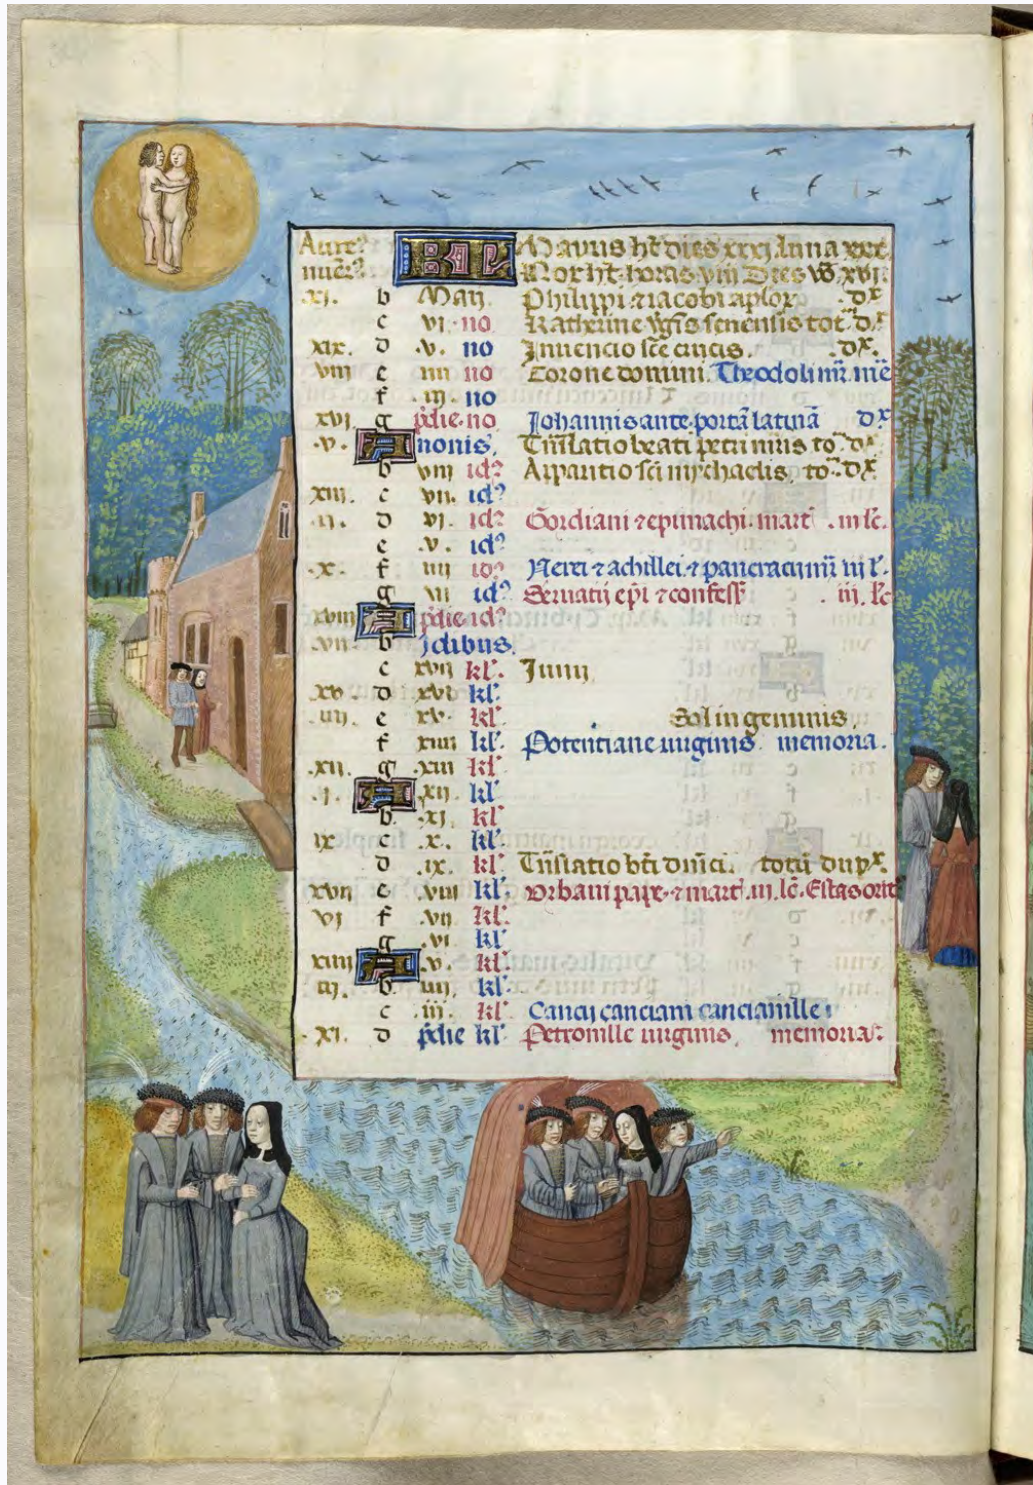 Aure⁹ KL Mayus ht dies xxxi. Luna xxx
nuer⁹ Nox ht horas viii Dies v͞o xvi.
.xi. b Maij. Philippi ⁊ iacobi aplor . dx
c vi. no Katherine v͞gis senensis tot. dx
xix. d .v. no Inuencio sc͞e crucis. .dx.
viii e iiii no Corone domini. Theodoli mr. me
f .iii. no
xvi g p͞die. no Johannis ante. porta͞ latina͞ dx
.v. A nonis. Tn͞slatio beati petri mris to dx
b viii id⁹ Apparitio sc͞i mychaelis, to. dx
xiii. c vii. id⁹
.ii. d vi. id⁹ Gordiani ⁊ epimachi. mart . iii lc.
e .v. id⁹
.x. f iiii id⁹ Nerei ⁊ achillei. ⁊ pancracii mr iii l.
g iii id⁹ Seruatij epi ⁊ confess . iii. lc
xviii A p͞die id⁹
.vii. b jdibus.
c xvii kl. Junij
xv d xvi kl.
.iiii. e xv. kl. Sol in geminis.
f xiiii kl. Potentiane uirginis. memoria.
.xii. g .xiii kl.
.i. A .xii. kl.
b. .xi. kl
ix c .x. kl.
d .ix. kl. Tn͞slatio bt͞i dnici. totu͞ dupx.
xvii e .viii kl. vrbani pape. ⁊ mart. iii. lc͞. Estas orit
vi f .vii kl.
g .vi kl
xiiii A .v. kl.
iii. b. iiii. kl.
c .iii. kl Cancij canciam cancianille
.xi. d p͞die kl. Petronille uirginis, memoria.